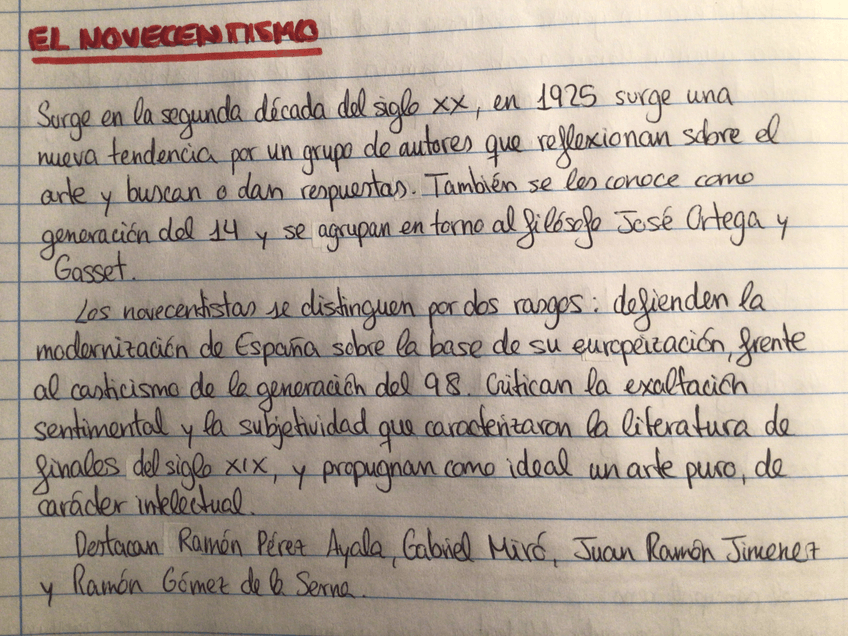 EL NOVECENTISMO
Surge en la segunda década del siglo XX, en 1925 surge una
nueva tendencia por un grupo de autores que reflexionan sobre el
arte y buscan o dan respuestas. También se les conoce como
generación del 14 y se agrupan en torno al filósofo José Ortega y
Gasset.
Los novecentistas se distinguen por dos rasgos: defienden la
modernización de España sobre la base de su europeización, frente
al casticismo de la generación del 98. Critican la exaltación
sentimental y la subjetividad que caracterizaron la literatura de
finales del siglo XIX, y propugnan como ideal un arte puro, de
carácter intelectual.
Destacan Ramón Pérez Ayala, Gabriel Miró, Juan Ramón Jimenez
y Ramón Gómez de la Serna.